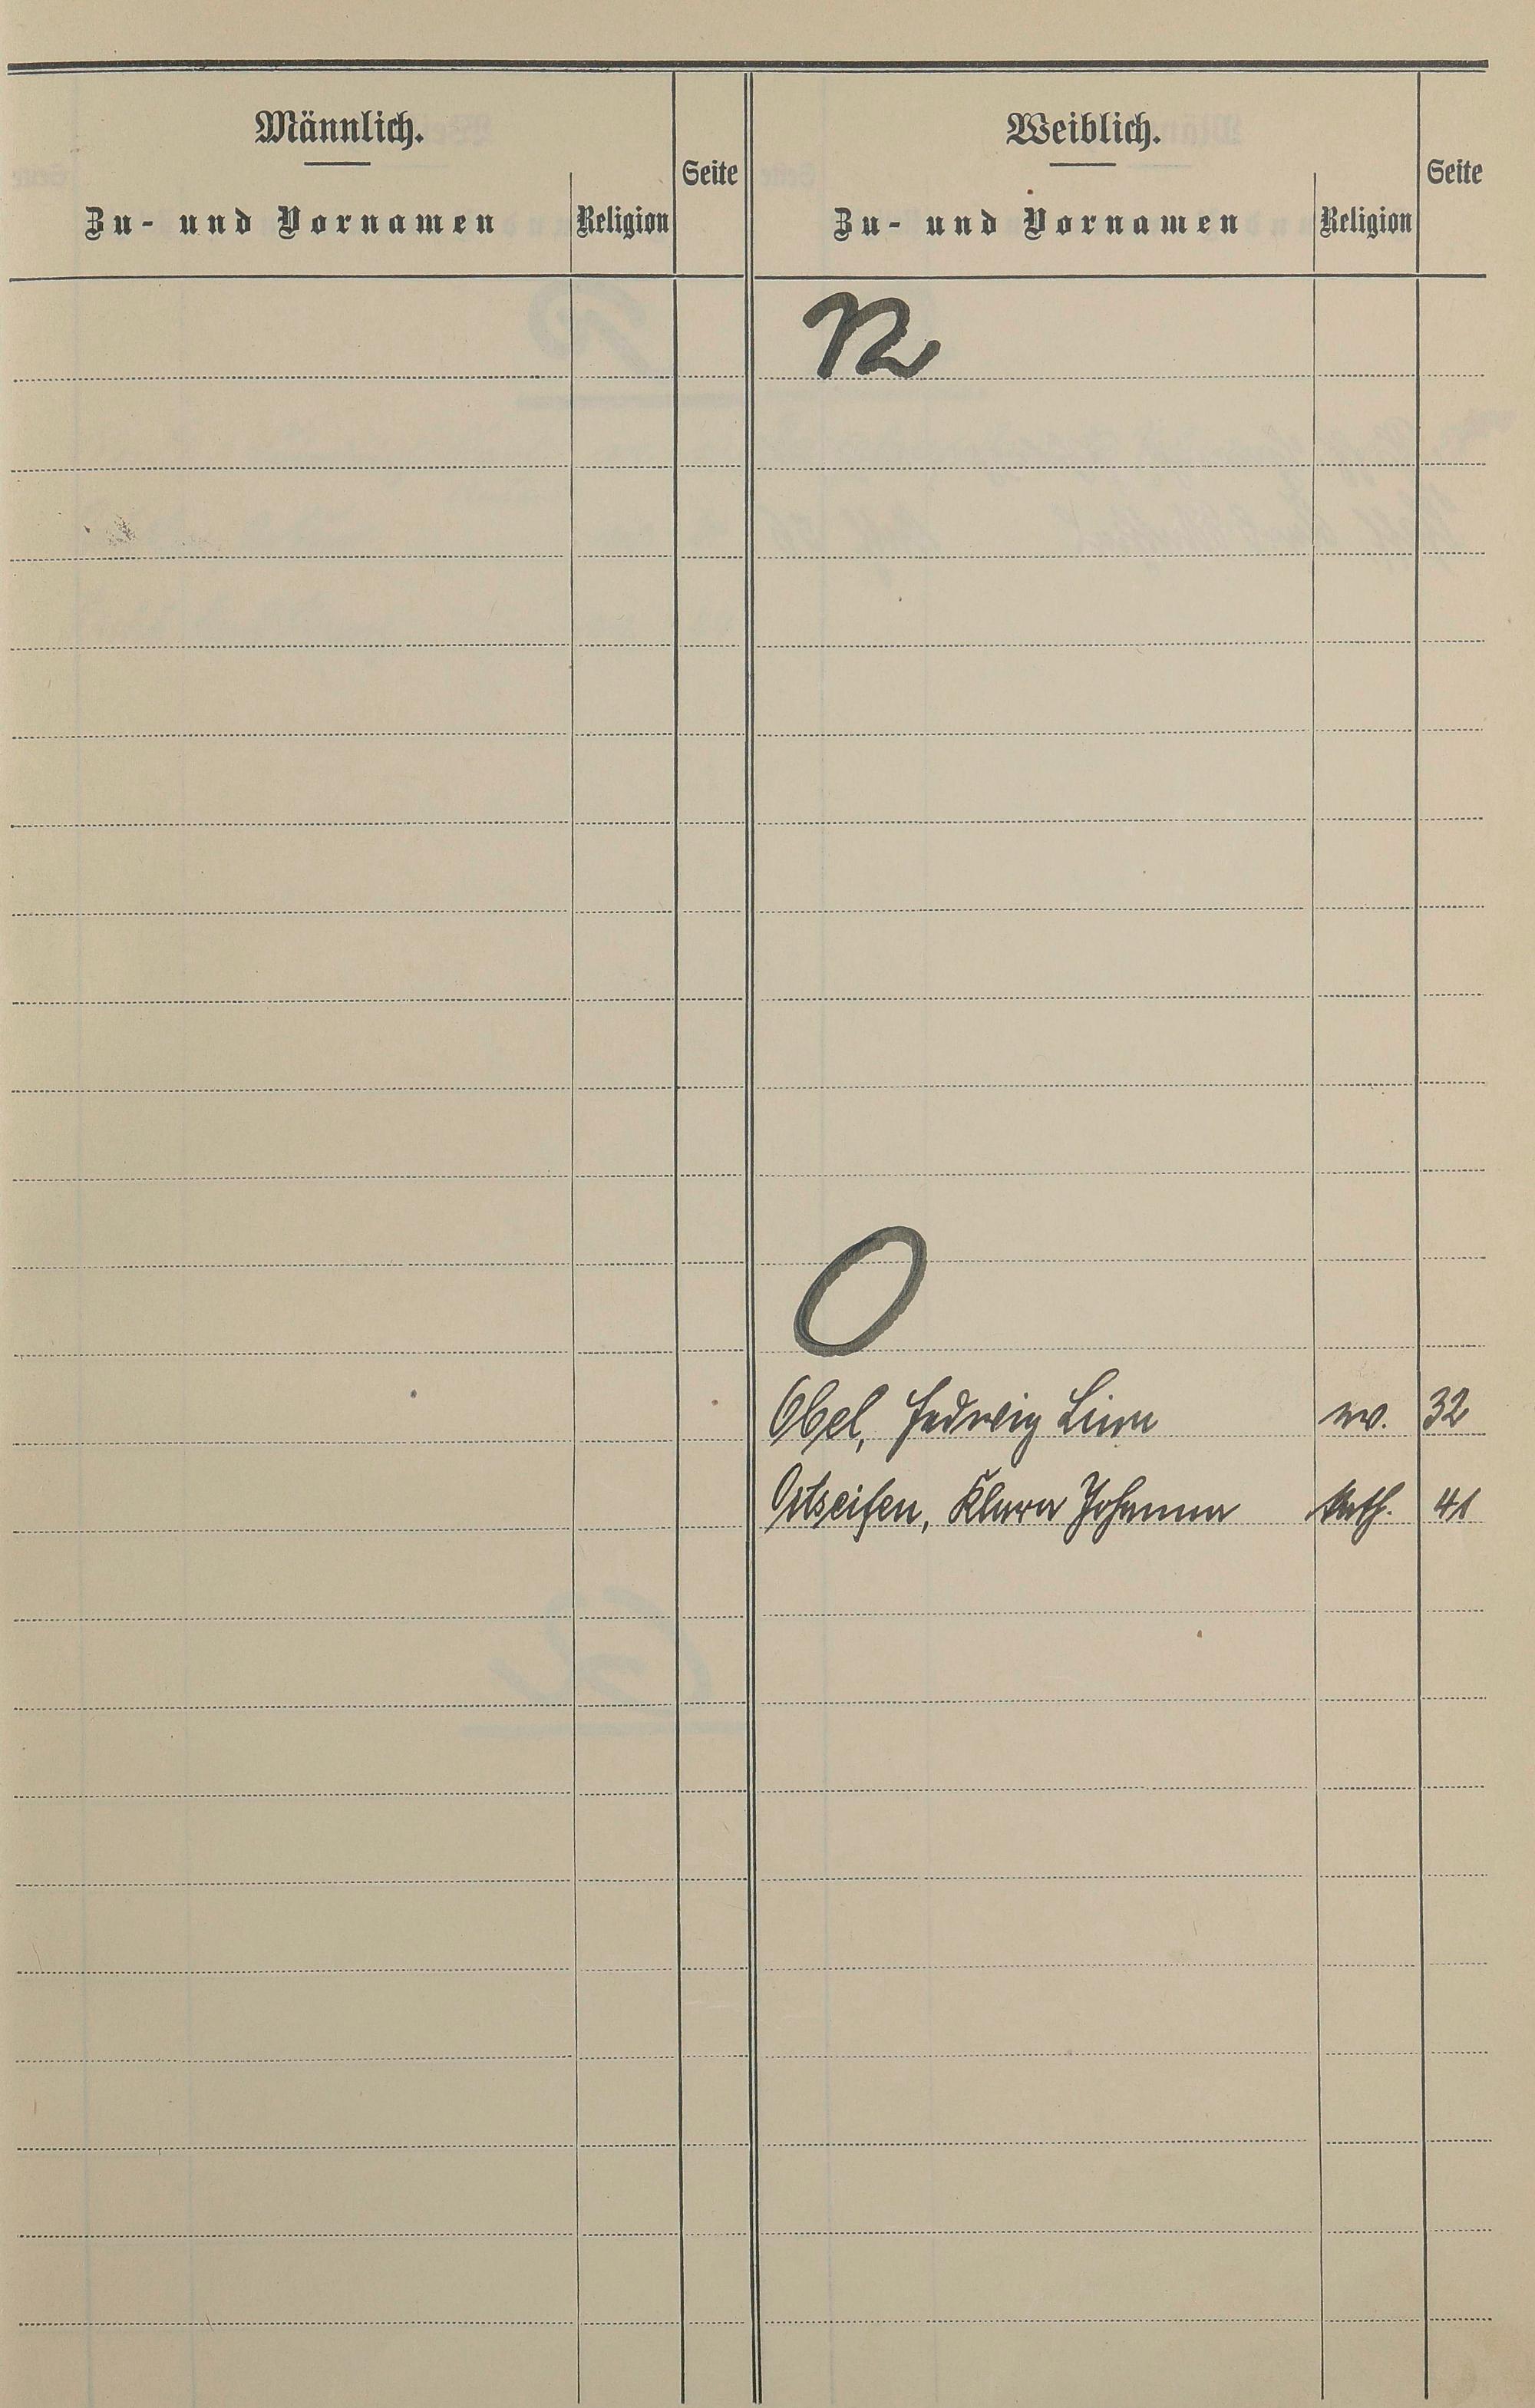 Männlich.
Zu- und Vornamen
Religion
Seite
Weiblich.
Zu- und Vornamen
Religion
Seite
N
O
Obel, Hedwig Lina ev. 32
Ortseifen, Klara Johanna kath. 41